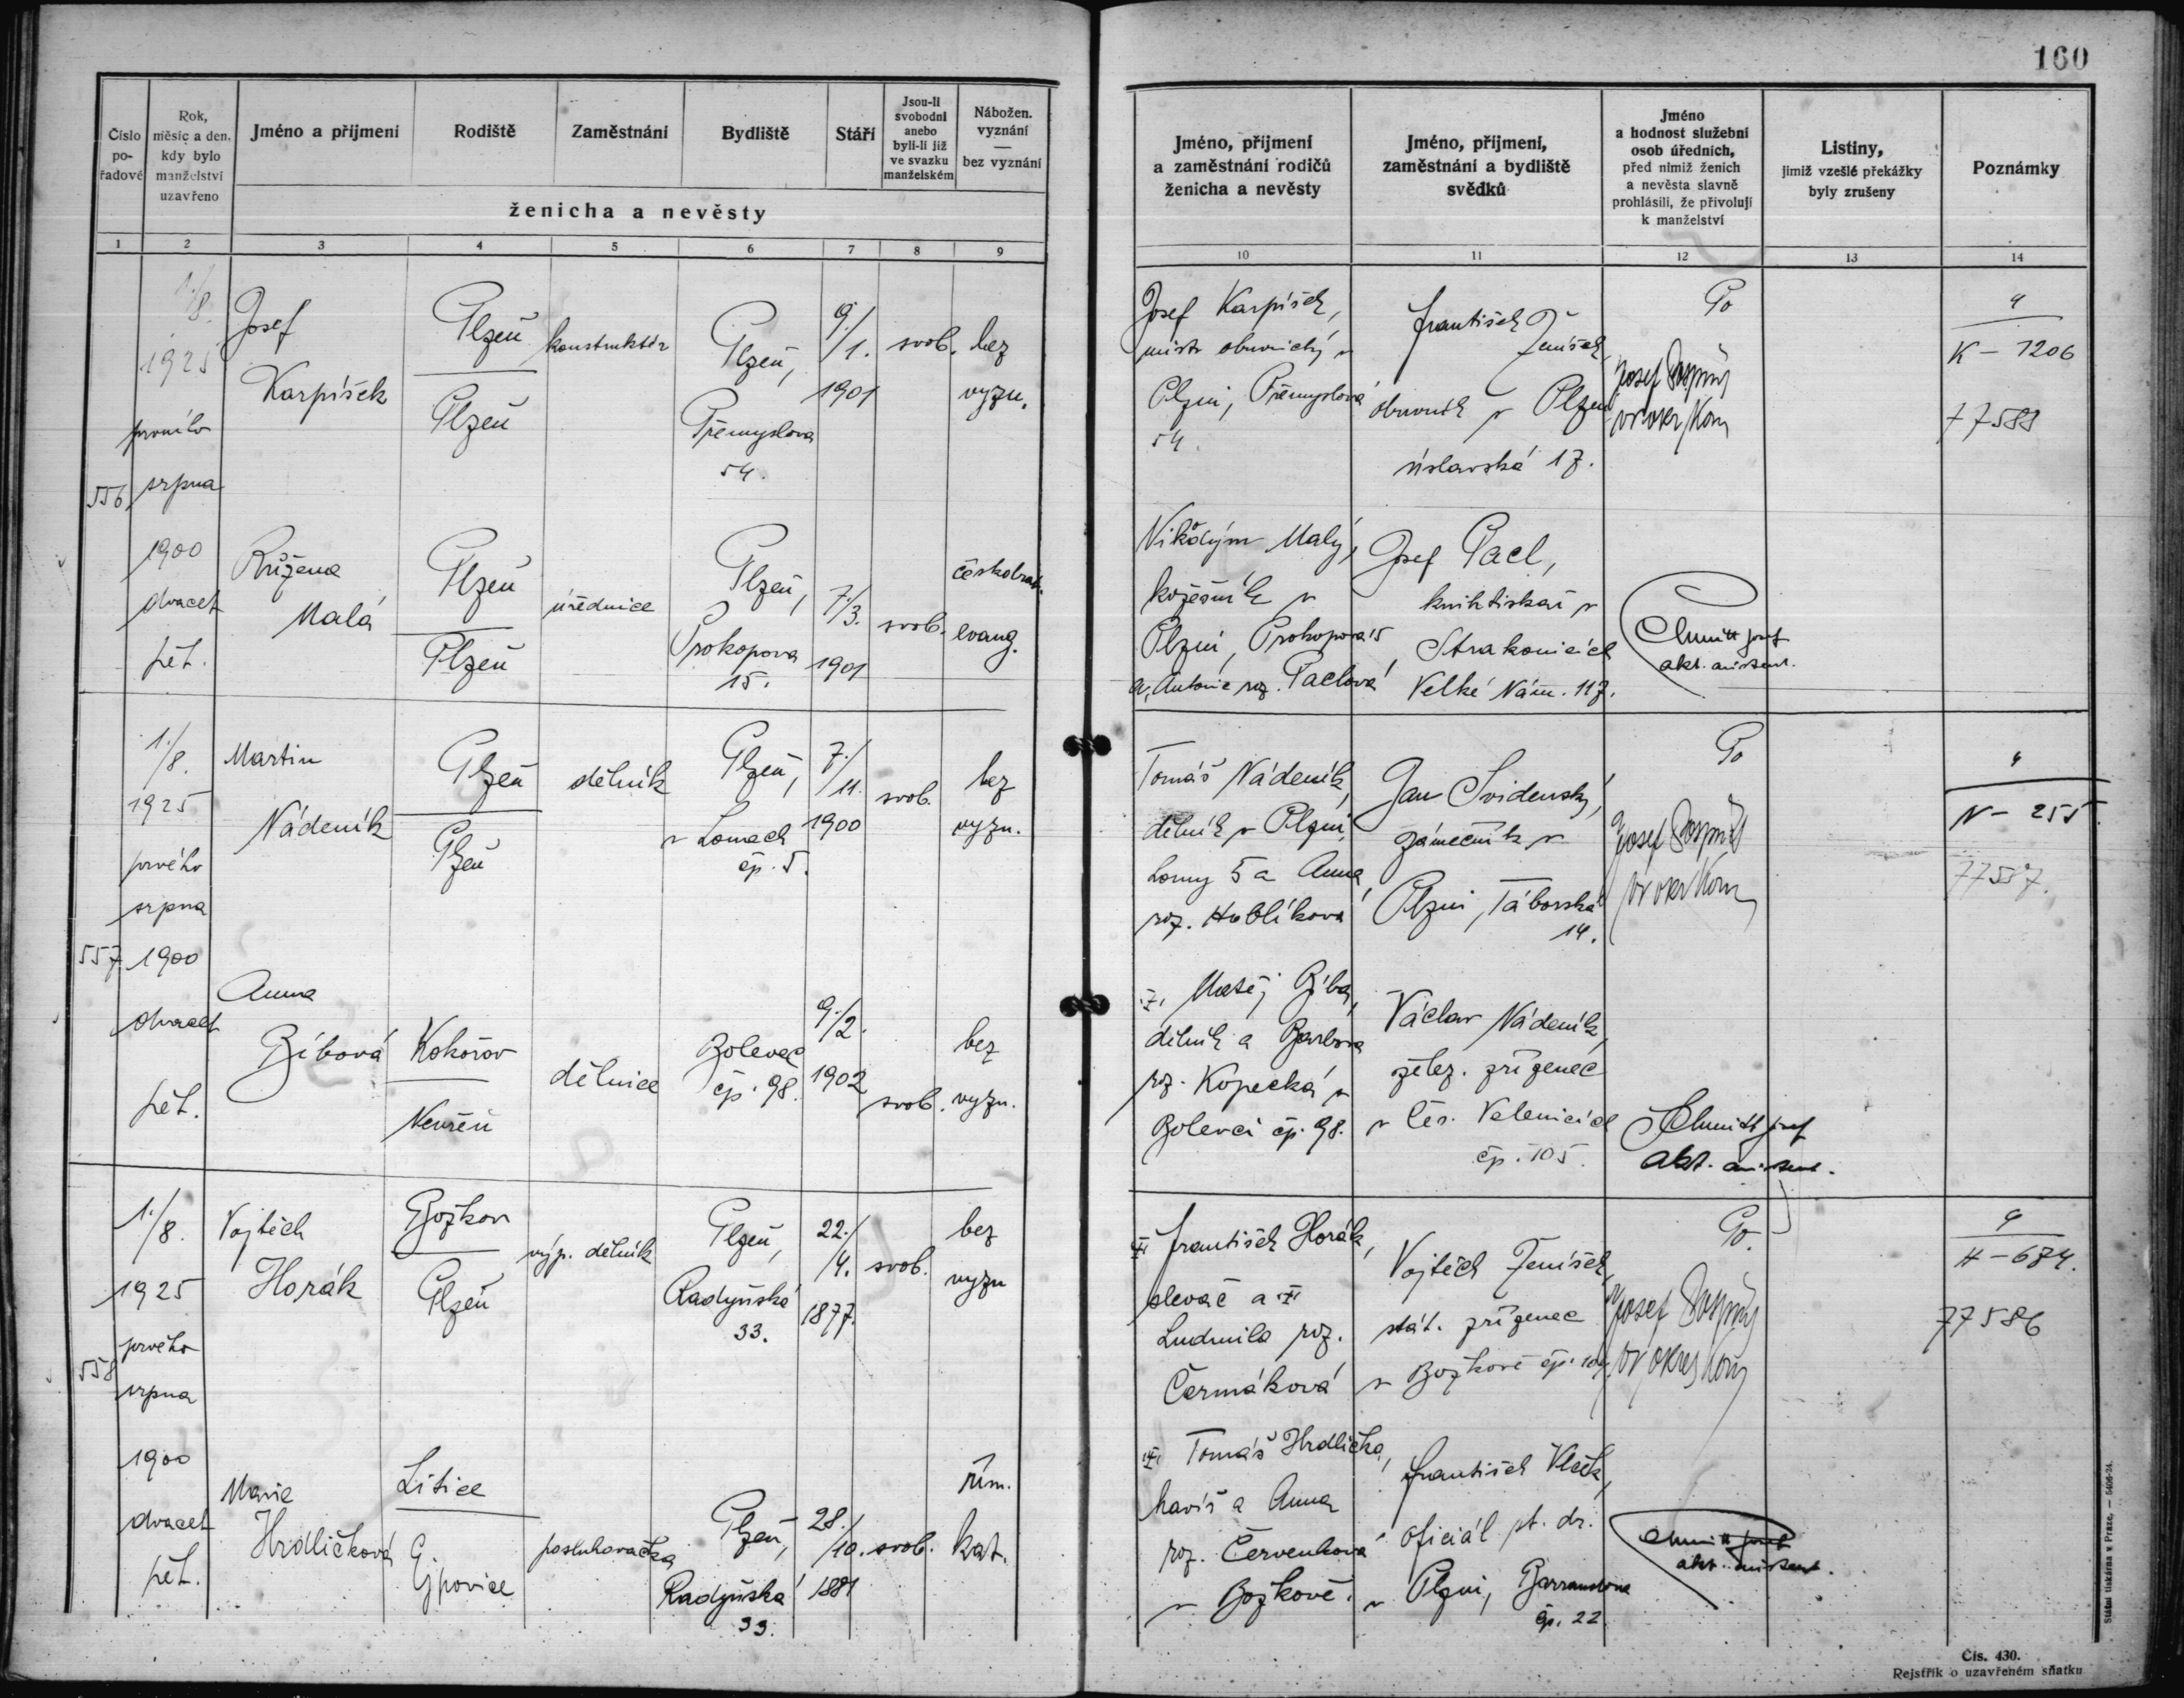 160
Číslo pořadové
Rok, měsíc a den, kdy bylo manželství uzavřeno
Jméno a příjmení
Rodiště
Zaměstnání
Bydliště
Stáří
Jsou-li svobodní anebo byli-li již ve svazku manželském
Nábožen. vyznání — bez vyznání
ženicha a nevěsty
Jméno, příjmení a zaměstnání rodičů ženicha a nevěsty
Jméno, příjmení, zaměstnání a bydliště svědků
Jméno a hodnost služební osob úředních, před nimiž ženich a nevěsta slavně prohlásili, že přivolují k manželství
Listiny, jimiž vzešlé překážky byly zrušeny
Poznámky
1 2 3 4 5 6 7 8 9 10 11 12 13 14
556
1./8.
1925
prvního
srpna
1900
dvacet
pět.
Josef
Karpíšek
Plzeň
Plzeň
konstruktér
Plzeň,
Přemyslova
54.
9./1.
1901
svob.
bez
vyzn.
Josef Karpíšek,
mistr obuvnický v
Plzni, Přemyslova
54.
František
Jeníšek,
obuvník v Plzni
úslavská 17.
Josef Pospíšil
K – 1206
77588
Růžena
Malá
Plzeň
Plzeň
úřednice
Plzeň,
Prokopova
15.
7./3.
1901
svob.
českobrat.
evang.
Nikodým Malý,
kožešník v
Plzni, Prokopova 15
a Antonie roz. Paclová
Josef Pacl,
knihtiskař v
Strakonicích
Velké Nám. 117.
akt. assistent.
557
1./8.
1925
prvého
srpna
1900
dvacet
pět.
Martin
Nádeník
Plzeň
Plzeň
dělník
Plzeň,
v Lomech
čp. 5.
7./11.
1900
svob.
bez
vyzn.
Tomáš Nádeník,
dělník v Plzni,
Lomy 5 a Anna
roz. Hublíková
Jan Svidenský,
zámečník v
Plzni, Táborská
14.
N – 255.
77557.
Anna
Bíbová
Kokořov
Nevřeň
dělnice
Bolevec
čp. 98.
9./2.
1902
svob.
bez
vyzn.
Matěj Bíba,
dělník a Barbora
roz. Kopecká v
Bolevci čp. 98.
Václav Nádeník,
želez. zřízenec
v Čes. Velenicích
čp. 105.
akt. assistent.
558
1./8.
1925
prvého
srpna
1900
dvacet
pět.
Vojtěch
Horák
Božkov
Plzeň
výp. dělník
Plzeň,
Radyňská
33.
22./4.
1877.
svob.
bez
vyzn
František Horák,
slevač a
Ludmila roz.
Čermáková
Vojtěch Jeníšek,
stát. zřízenec
v Božkově
H – 674.
77586
Marie
Hrdličková
Litice
Ejpovice
posluhovačka
Plzeň,
Radyňská
33.
28./10.
1881
svob.
řím.
kat.
Tomáš Hrdlička,
havíř a Anna
roz. Červenková
v Božkově.
František Vlček,
oficiál st. dr.
v Plzni, Barrandova
čp. 22.
akt. assistent.
Státní tiskárna v Praze. — 5406-24.
Čís. 430.
Rejstřík o uzavřeném sňatku